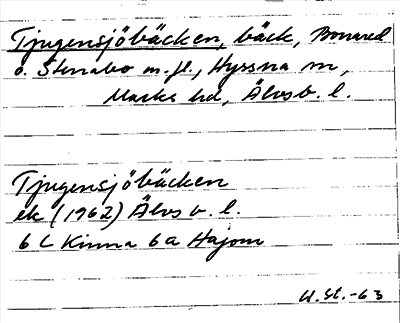 Tjugensjöbäcken, bäck, Bonared
o. Stenabo m.fl., Hyssna sn,
Marks hd, Älvsb. l.
Tjugensjöbäcken
ek (1962) Älvsb. l.
6 C Kinna 6 a Hajom
U.St.-63